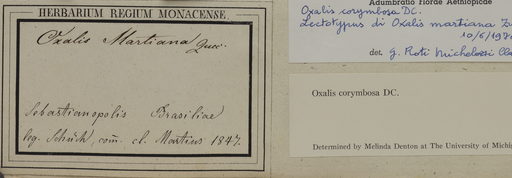 HERBARIUM REGIUM MONACENSE.
Oxalis Martiana Zucc.
Sebastianopolis Brasiliae
leg. Schüch, com. cl. Martius 1847.
Adumbratio Florae Aethiopicae
Oxalis corymbosa DC.
Lectotypus di Oxalis martiana
10/6/19
det. G. Roti Michelozzi
Oxalis corymbosa DC.
Determined by Melinda Denton at The University of Michi